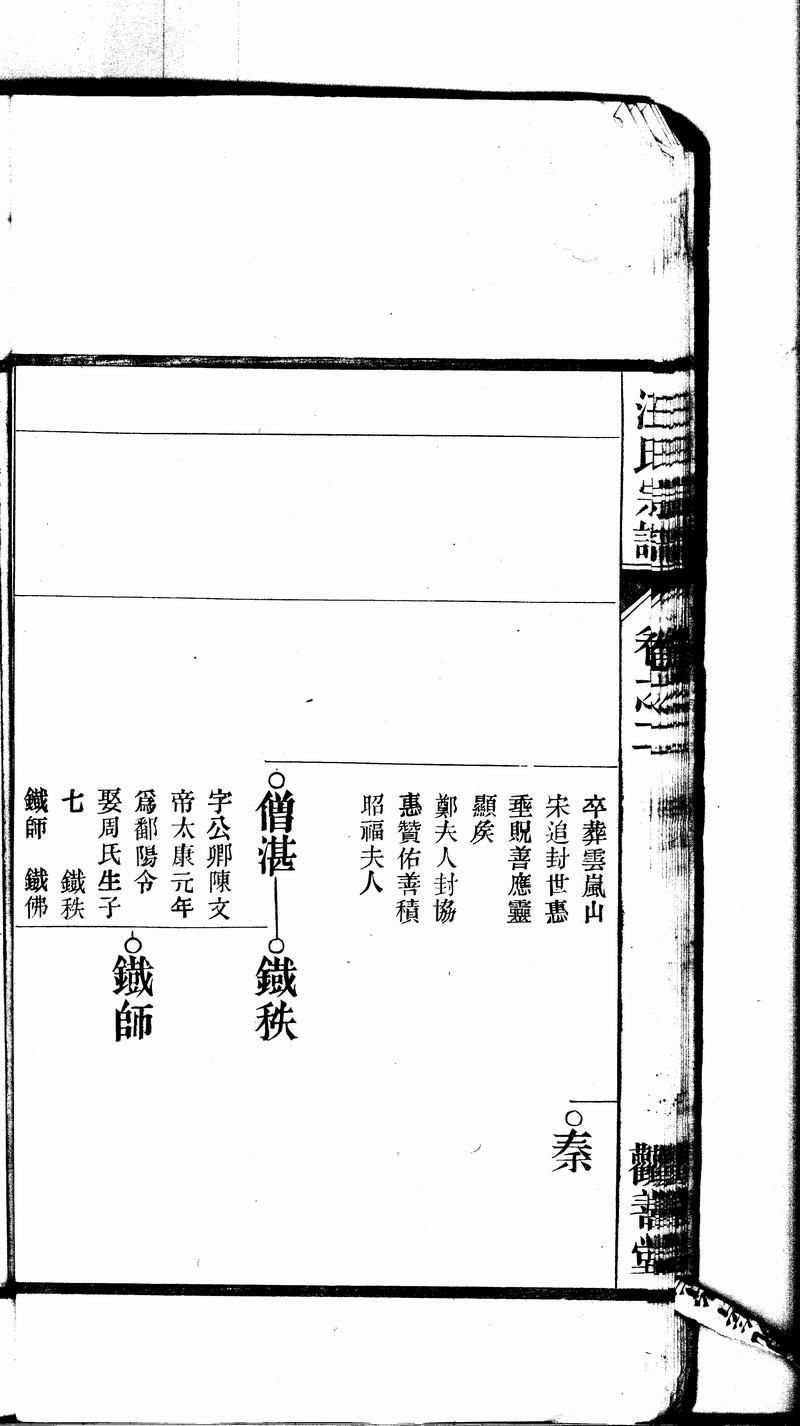 汪氏宗譜
卷之
觀善堂
卒葬雲嵐山
宋追封世惠
垂貺善應靈
顯矦
鄭夫人封協
惠贊佑善積
昭福夫人
僧湛
字公卿陳文
帝太康元年
爲鄱陽令
娶周氏生子
七　鐵秩
鐵師　鐵佛
秦
鐵秩
鐵師